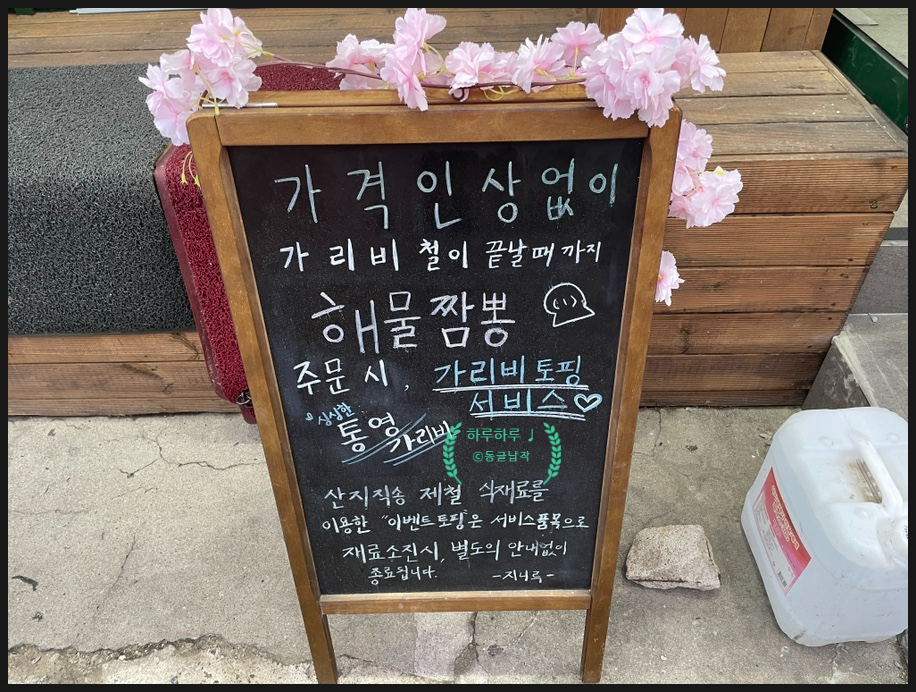 가격인상없이
가리비 철이 끝날때 까지
해물짬뽕
주문 시, 가리비토핑
서비스♡
싱싱한
통영 가리비
하루하루 ♩
©동글납작
산지직송 제철 식재료를
이용한 "이벤트토핑"은 서비스품목으로
재료소진시, 별도의 안내없이
종료됩니다.